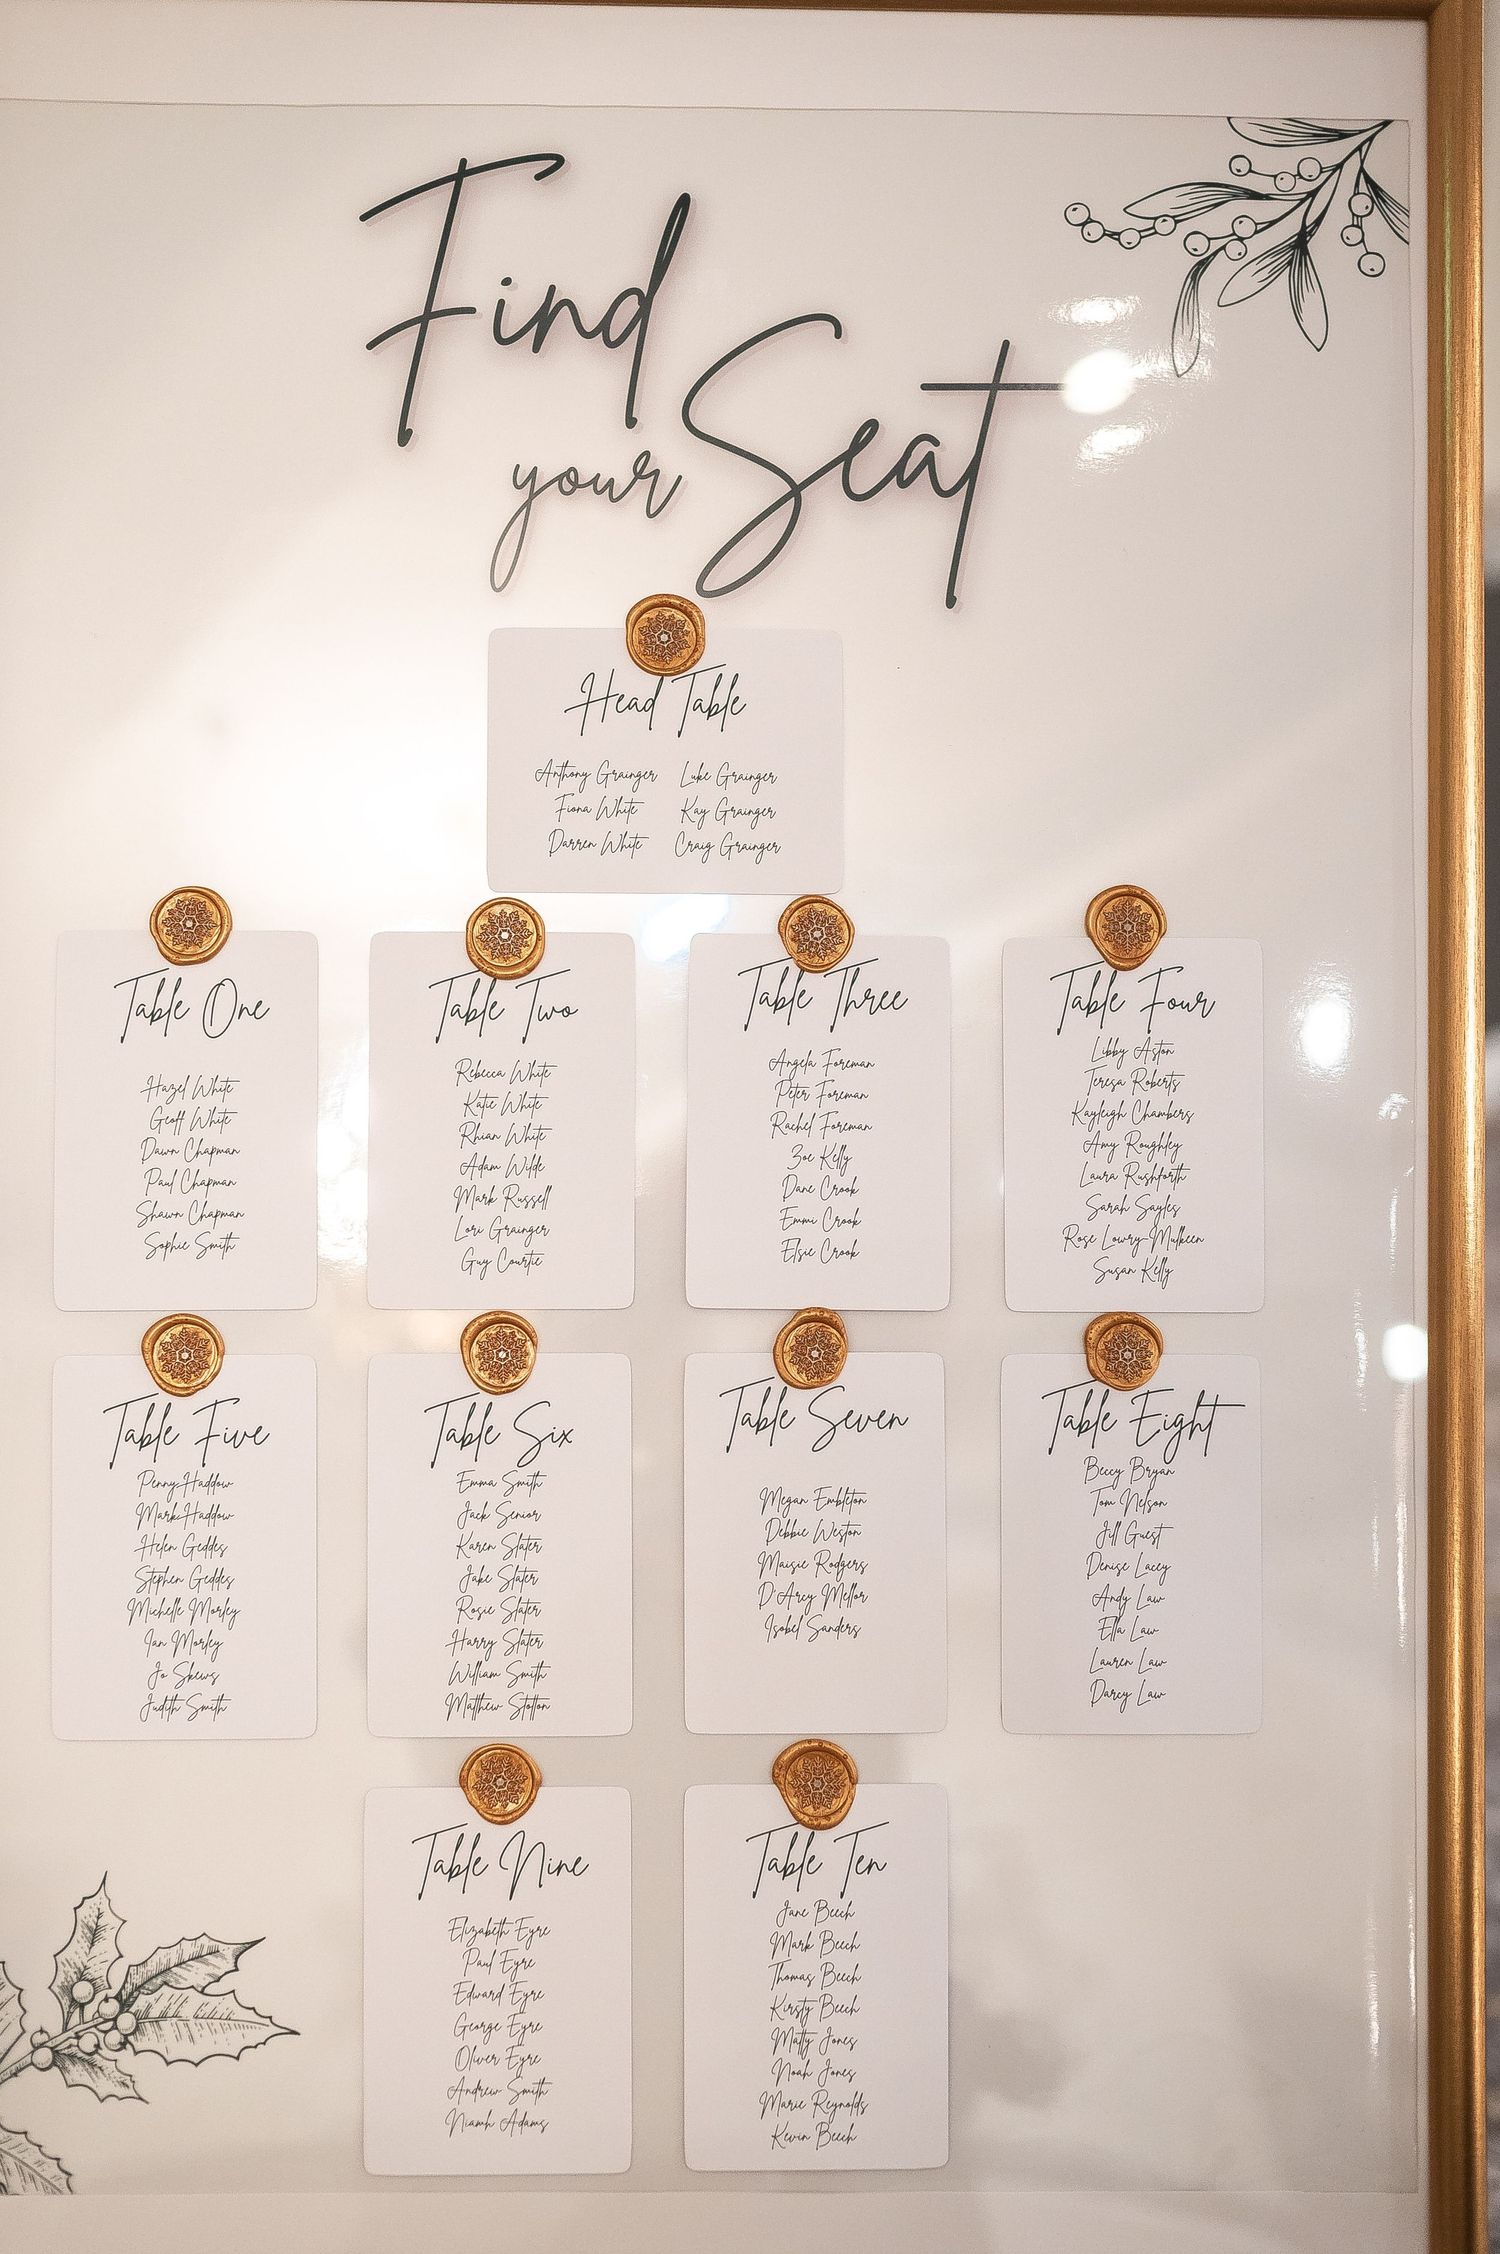 Find
your Seat
Head Table
Anthony Grainger Luke Grainger
Fiona White Kay Grainger
Darren White Craig Grainger
Table One
Hazel White
Geoff White
Dawn Chapman
Paul Chapman
Shawn Chapman
Sophie Smith
Table Two
Rebecca White
Katie White
Rhian White
Adam Wilde
Mark Russell
Lori Grainger
Guy Courtie
Table Three
Angela Foreman
Peter Foreman
Rachel Foreman
Zoe Kelly
Dane Crook
Emmi Crook
Elsie Crook
Table Four
Libby Aston
Teresa Roberts
Kayleigh Chambers
Amy Roughley
Laura Rushforth
Sarah Sayles
Rose Lowry-Mulkeen
Susan Kelly
Table Five
Penny Haddow
Mark Haddow
Helen Geddes
Stephen Geddes
Michelle Morley
Ian Morley
Jo Skews
Judith Smith
Table Six
Emma Smith
Jack Senior
Karen Slater
Jake Slater
Rosie Slater
Harry Slater
William Smith
Matthew Stotton
Table Seven
Megan Embleton
Debbie Weston
Maisie Rodgers
D'Arcy Mellor
Isobel Sanders
Table Eight
Beccy Bryan
Tom Nelson
Jill Guest
Denise Lacey
Andy Law
Ella Law
Lauren Law
Darcy Law
Table Nine
Elizabeth Eyre
Paul Eyre
Edward Eyre
George Eyre
Oliver Eyre
Andrew Smith
Niamh Adams
Table Ten
Jane Beech
Mark Beech
Thomas Beech
Kirsty Beech
Matty Jones
Noah Jones
Marie Reynolds
Kevin Beech